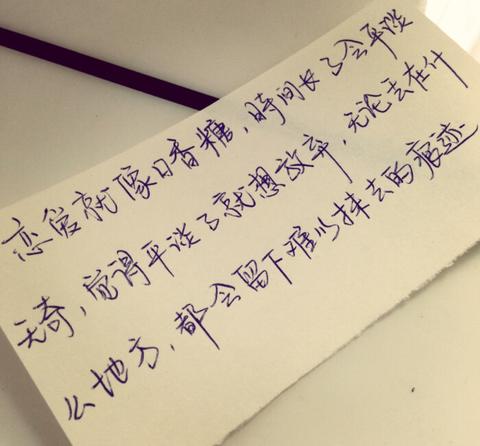 恋爱就像口香糖，时间长了会平淡
无奇，觉得平淡了就想放弃，无论丢在什
么地方，都会留下难以抹去的痕迹